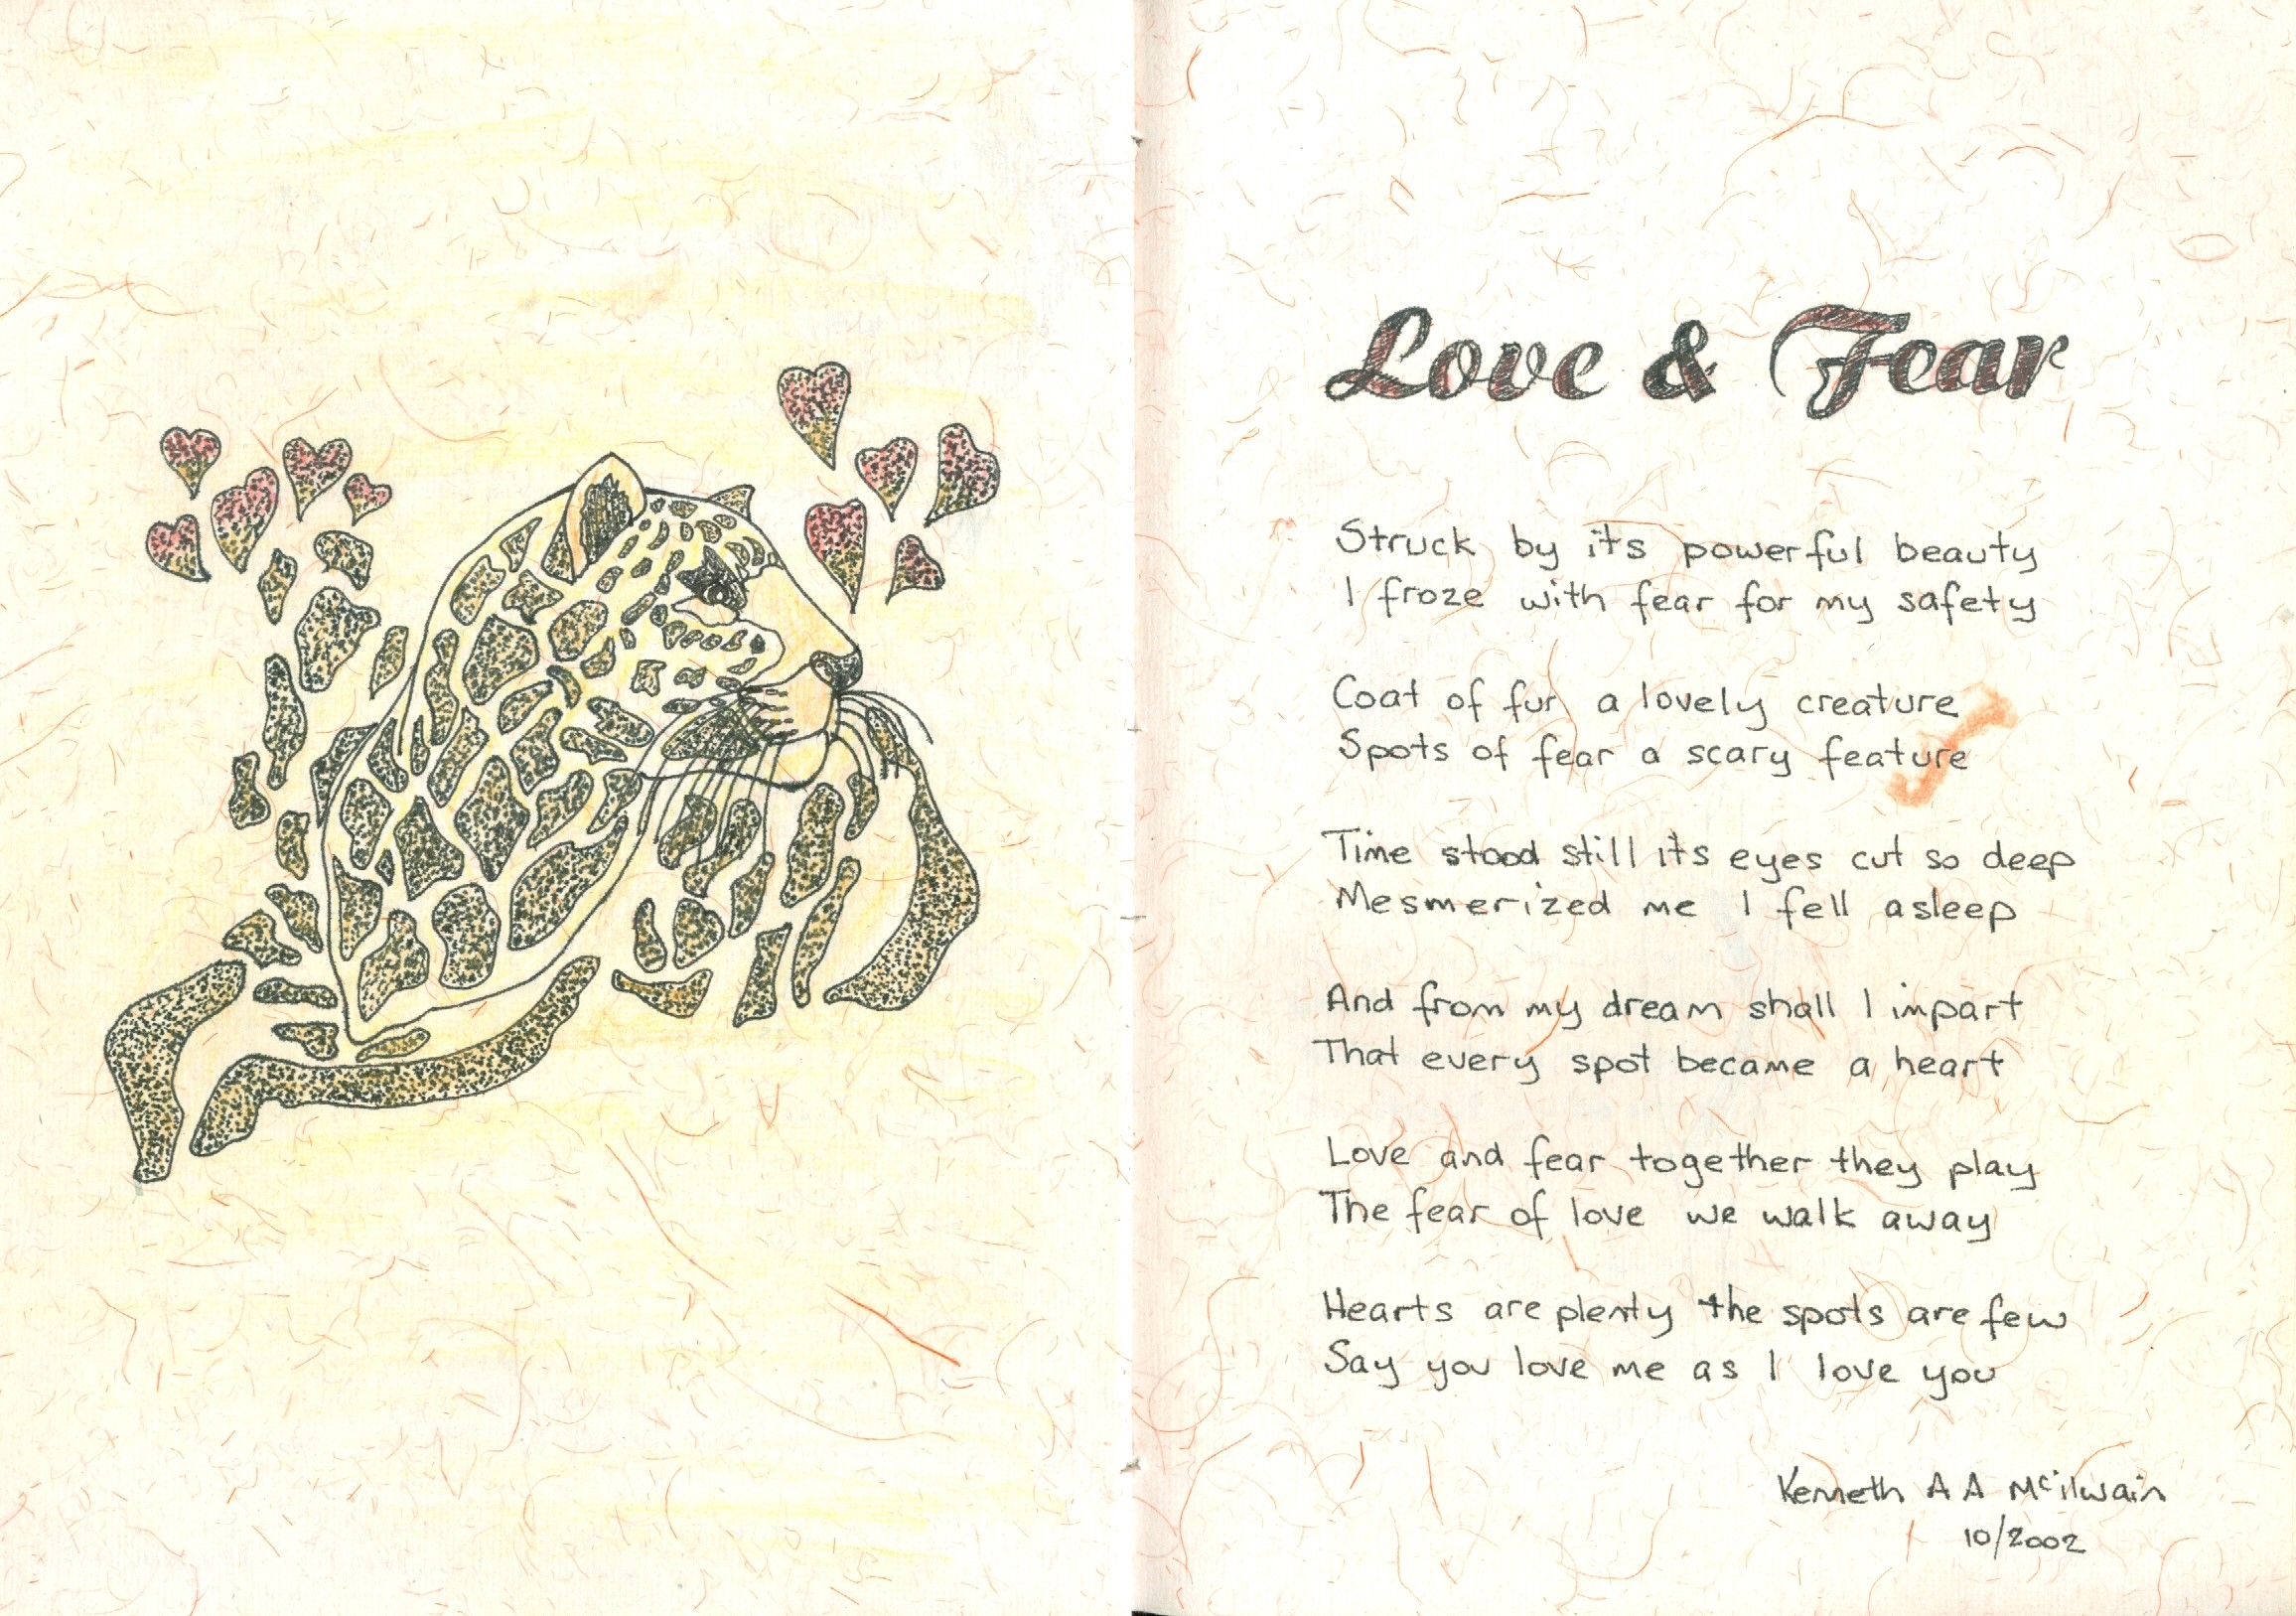 Love & Fear
Struck by it's powerful beauty
I froze with fear for my safety
Coat of fur a lovely creature
Spots of fear a scary feature
Time stood still its eyes cut so deep
Mesmerized me I fell asleep
And from my dream shall I impart
That every spot became a heart
Love and fear together they play
The fear of love we walk away
Hearts are plenty the spots are few
Say you love me as I love you
Kenneth A A Mcilwain
10/2002